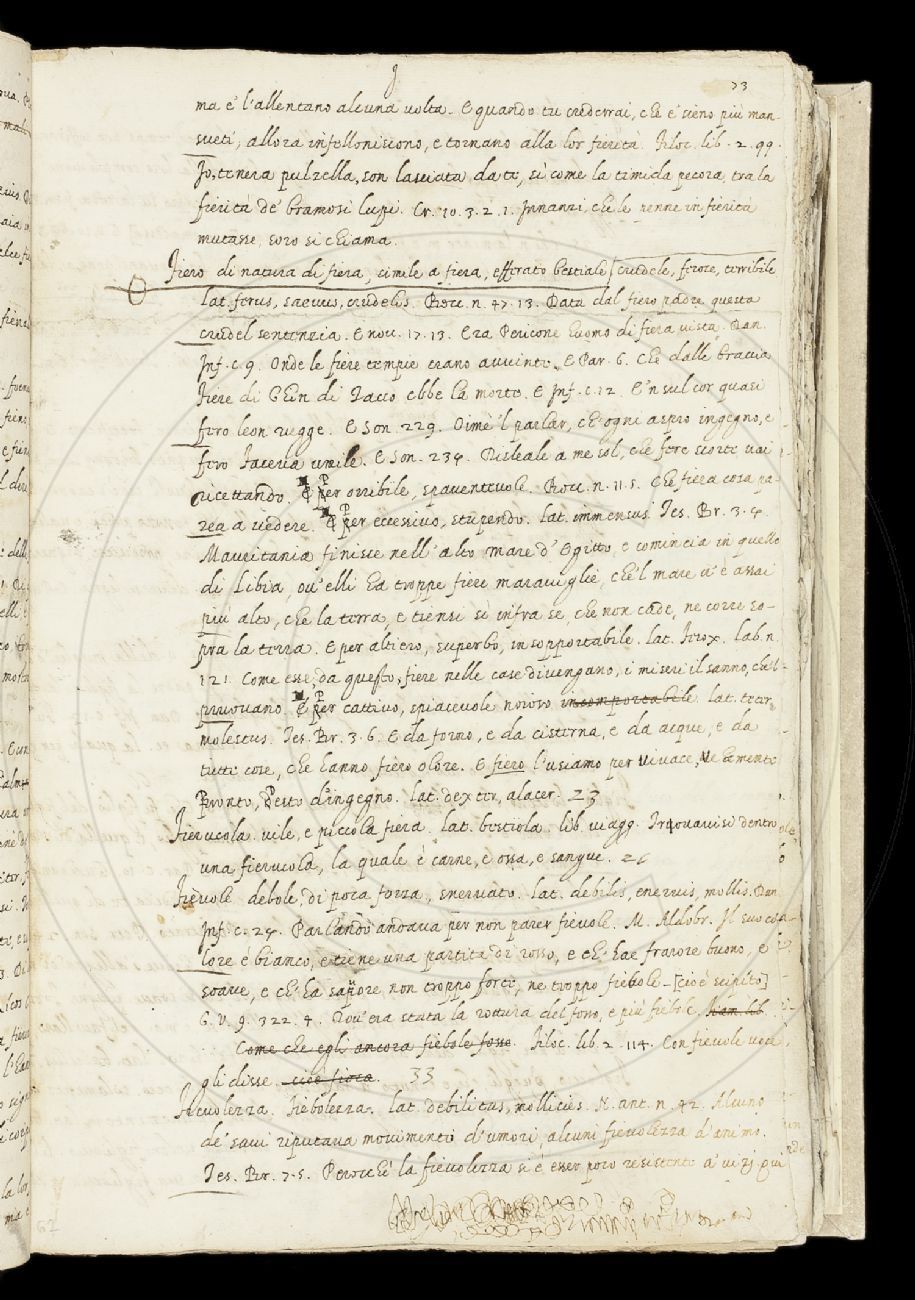 23
ma e' l'allentano alcuna uolta. E quando tu crederrai, che e' sieno più man-
sueti, allora infelloniscono, e tornano alla lor fierità. Filoc. lib. 2. 99.
Io, tenera pulzella, son lasciata da te, sì come la timida pecora, tra la
fierità de' bramosi lupi. Cr. 10. 3. 2. 1. Innanzi, che le penne in fierità
mutasse, soro si chiama.
Fiero di natura di fiera, simile a fiera, efferato bestiale [crudele, feroce, terribile
lat. ferus, saeuus, crudelis. Bocc. n. 47. 13. Data dal fiero padre questa
crudel sentenzia. E nou. 17. 13. Era Pericone huomo di fiera uista. Dan.
Inf. c. 9. Onde le fiere tempie erano auuinte. E Par. 6. Che dalle braccia
Fiere di Ghin di Tacco ebbe la morte. E Inf. c. 12. E 'n sul cor quasi
fero leon rugge. E Son. 229. Oimè 'l parlar, ch' ogni aspro ingegno, e
fero Faceua umile. E Son. 234. Disleale a me sol, che fere scorte uai
ricettando, per orribile, spauenteuole. Bocc. n. 11. 5. Che fiera cosa pa-
rea a uedere. per eccessiuo, stupendo. lat. immensus. Tes. Br. 3. 4.
Mauritania finisce nell' alto mare d' Egitto, e comincia in quello
di Libia, ou' elli ha troppe fiere marauiglie, che 'l mare u' è assai
più alto, che la terra, e tiensi sì infra se, che non cade, ne corre so-
pra la terra. E per altiero, superbo, insopportabile. lat. ferox. lab. n.
121. Come esse, da questo, fiere nelle case diuengano, i miseri il sanno, che 'l
pruouano. per cattiuo, spiaceuole noioso incomportabile. lat. teter,
molestus. Tes. Br. 3. 6. E da forno, e da cisterna, e da acque, e da
tutte cose, che hanno fiero olore. E fiero l'usiamo per Viuace, Veemente
Pronto, Desto d'ingegno. lat. dexter, alacer. 23
Fierucola. uile, e piccola fiera. lat. bestiola. lib. uiagg. Trouauisi dentro
una fierucola, la quale è carne, e ossa, e sangue. 26
Fieuole debole, di poca forza, sneruato. lat. debilis, eneruis, mollis. Dan.
Inf. c. 24. Parlando andaua per non parer fieuole. M. Aldobr. Il suo co-
lore è bianco, e tiene una partita di rosso, e ch' hae fravore buono, e
soaue, e ch' ha sapore non troppo forte, ne troppo fiebole - [cioè scipito]
G. V. 9. 322. 4. Dou' era stata la rottura del fosso, e più fiebole. Nom. lib.
Come che egli ancora fiebole fosse. Filoc. lib. 2. 114. Con fieuole uoce
gli disse. cioè fioca. 33
Fieuolezza. Fiebolezza. lat. debilitas, mollicies. N. ant. n. 42. Alcuno
de' saui riputaua mouimento d'umori, alcuni fieuolezza d'animo.
Tes. Br. 7. 5. Perocchè la fieuolezza si è esser poco resistente a' uizj. qui